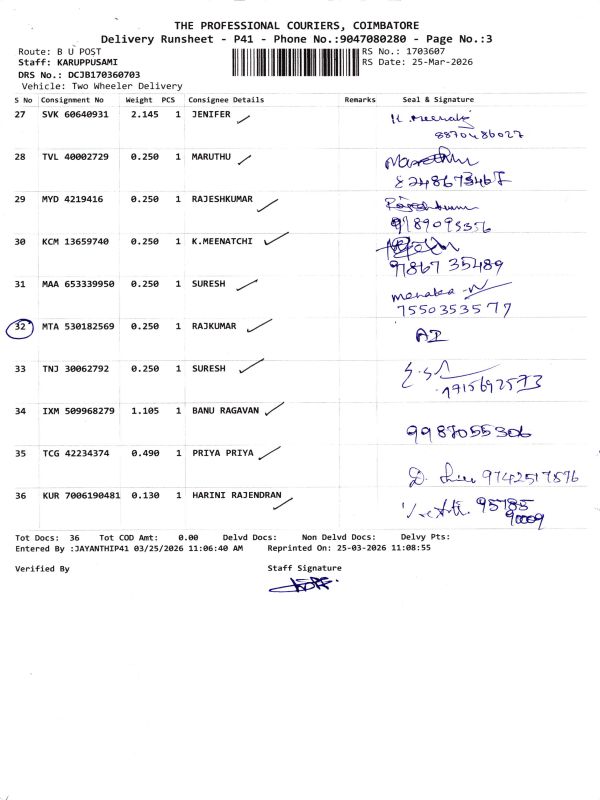 THE PROFESSIONAL COURIERS, COIMBATORE
Delivery Runsheet - P41 - Phone No.:9047080280 - Page No.:3
Route: B U POST
RS No.: 1703607
Staff: KARUPPUSAMI
RS Date: 25-Mar-2026
DRS No.: DCJB170360703
Vehicle: Two Wheeler Delivery
S No Consignment No Weight PCS Consignee Details Remarks Seal & Signature
27 SVK 60640931 2.145 1 JENIFER
8870486027
28 TVL 40002729 0.250 1 MARUTHU
8248673467
29 MYD 4219416 0.250 1 RAJESHKUMAR
9789095356
30 KCM 13659740 0.250 1 K.MEENATCHI
97867 35489
31 MAA 653339950 0.250 1 SURESH menaka
7550353577
32 MTA 530182569 0.250 1 RAJKUMAR
33 TNJ 30062792 0.250 1 SURESH
9715692573
34 IXM 509968279 1.105 1 BANU RAGAVAN
9987055306
35 TCG 42234374 0.490 1 PRIYA PRIYA
9742517896
36 KUR 7006190481 0.130 1 HARINI RAJENDRAN 95785
90009
Tot Docs: 36 Tot COD Amt: 0.00 Delvd Docs: Non Delvd Docs: Delvy Pts:
Entered By :JAYANTHIP41 03/25/2026 11:06:40 AM Reprinted On: 25-03-2026 11:08:55
Verified By Staff Signature